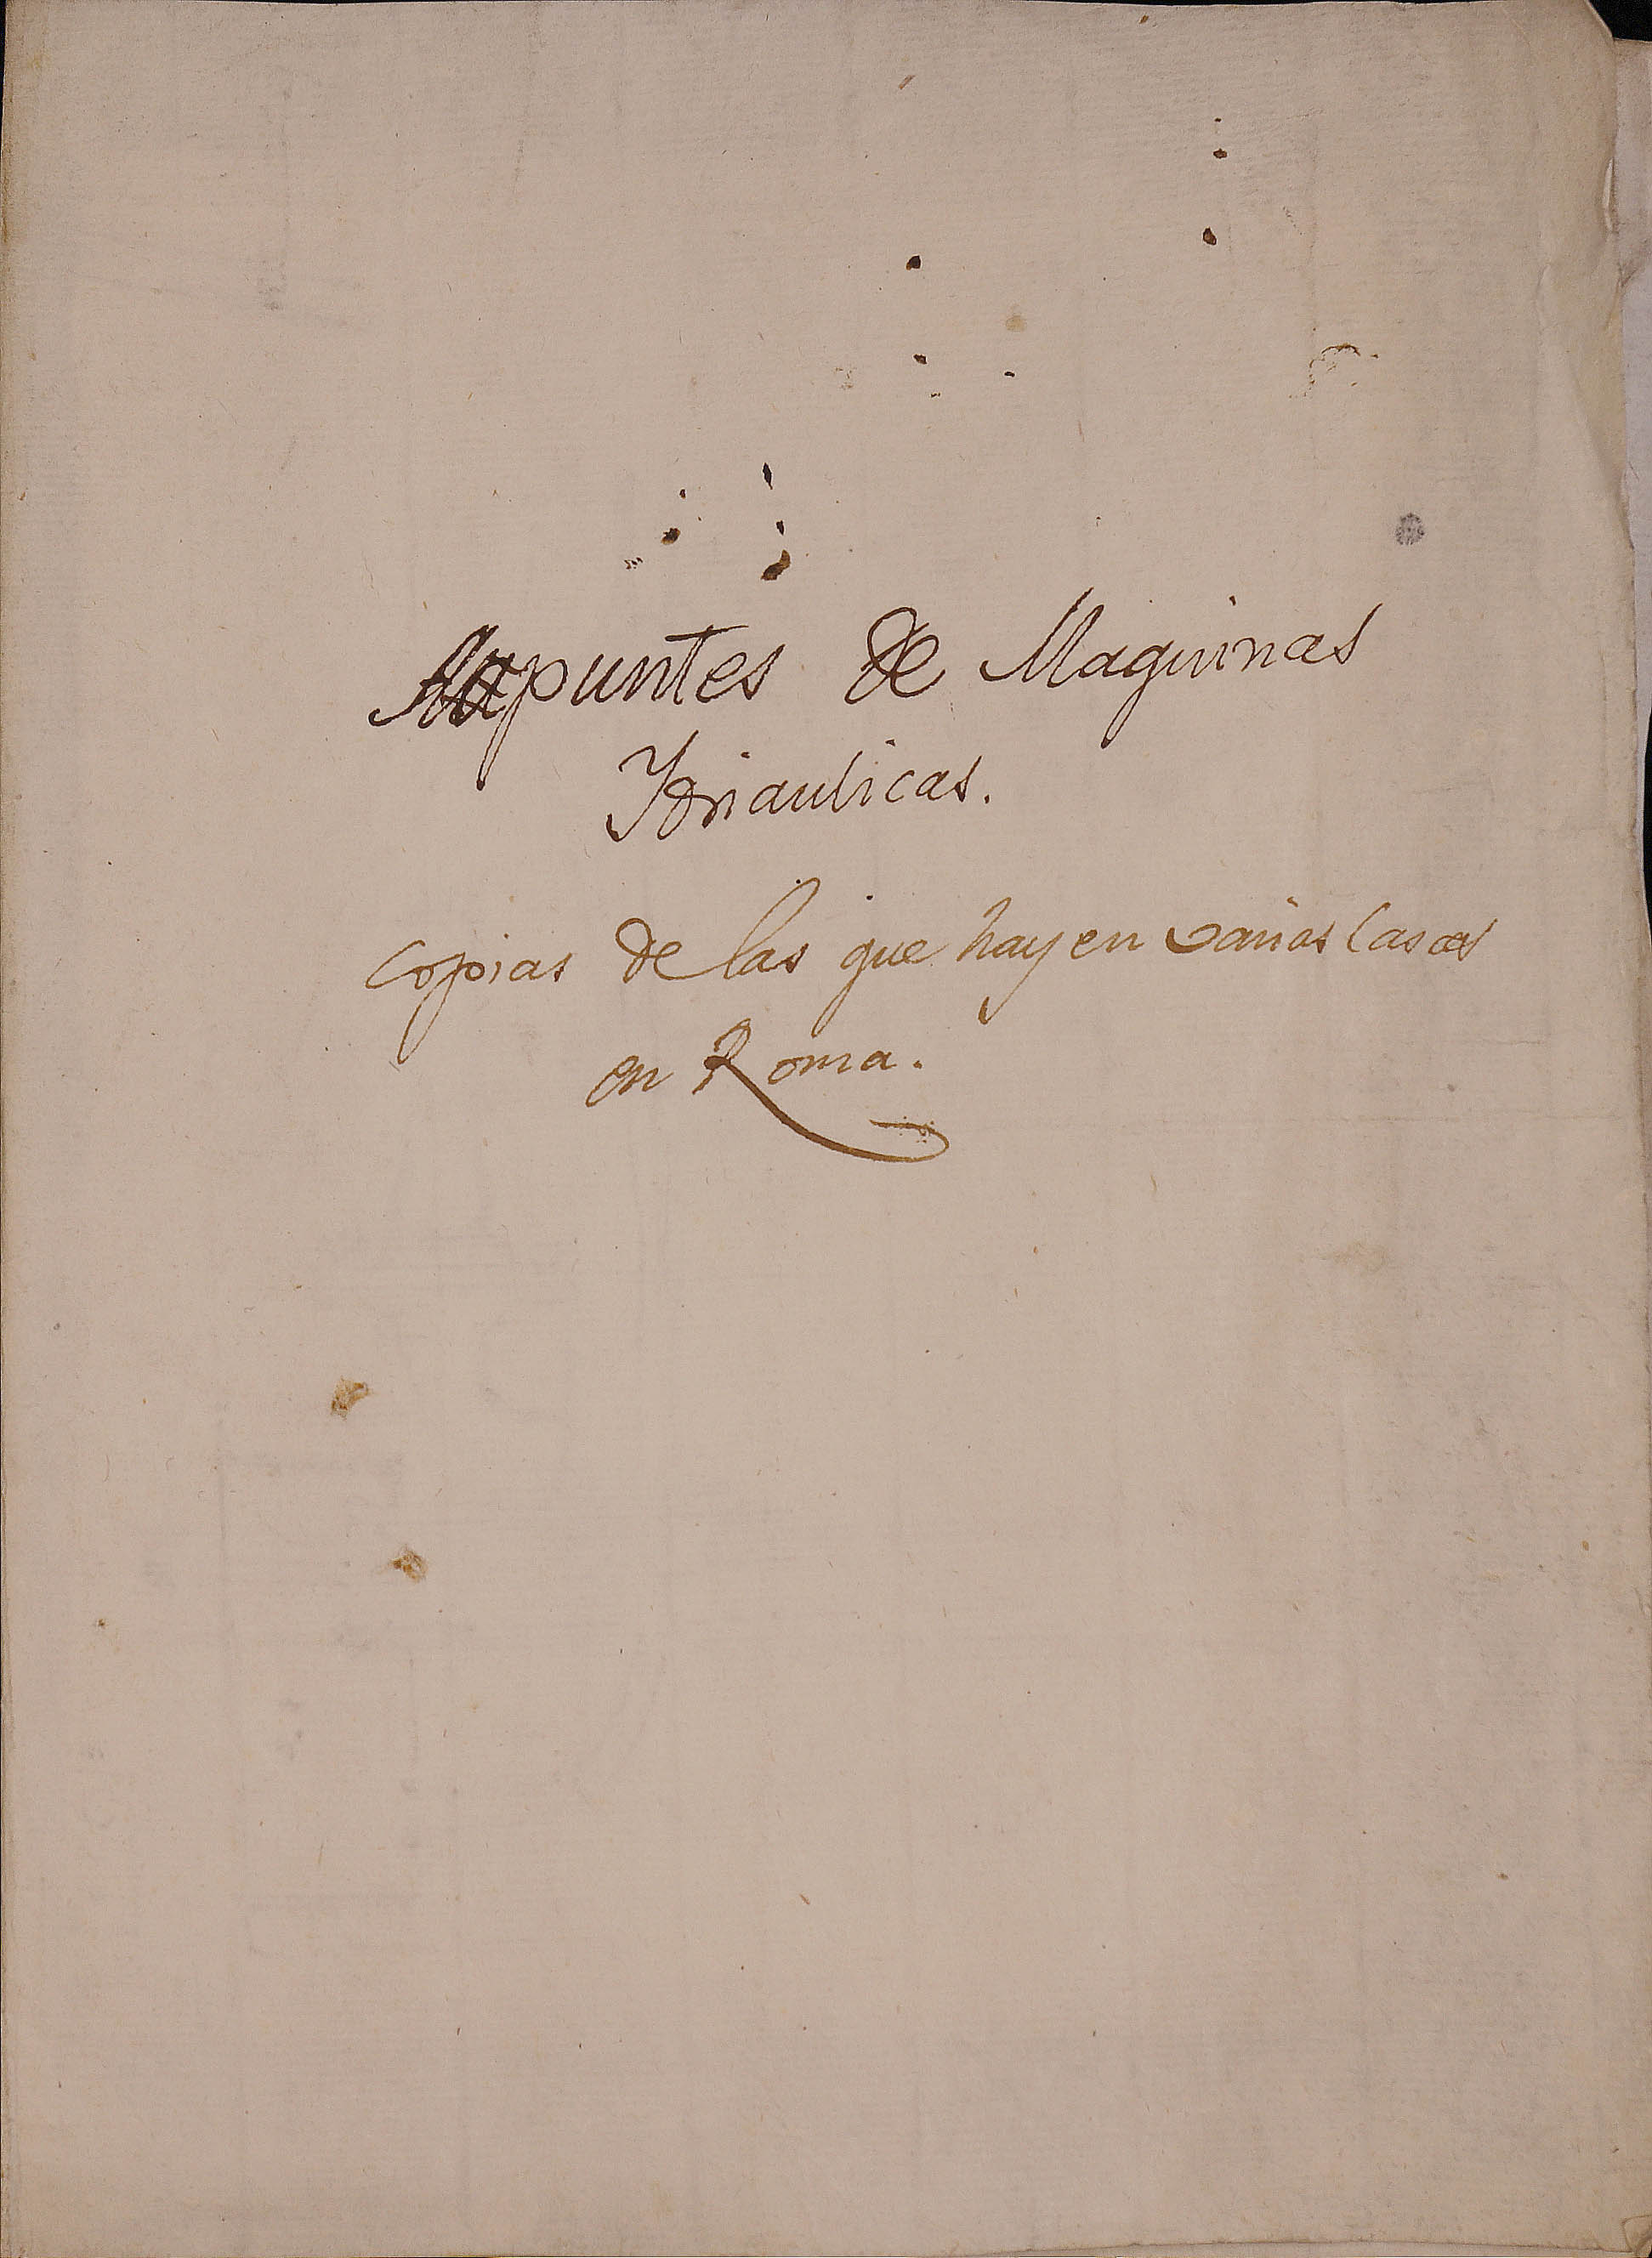 Apuntes de Maquinas
Ydriaulicas.
copias de las que hay en varias Casas
en Roma.